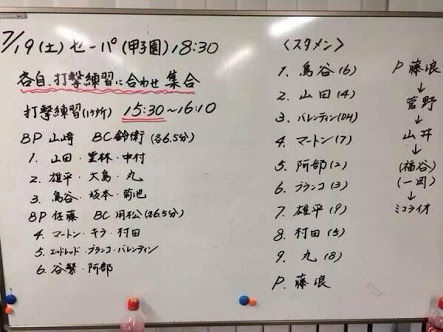 7/19(土) セ-パ(甲子園) 18:30
各自、打撃練習に合わせ 集合
打撃練習(1ヶ所) 15:30~16:10
BP 山﨑 BC 鈴衛(各6.5分)
1. 山田・堂林・中村
2. 雄平・大島・丸
3. 鳥谷・坂本・菊池
BP 佐藤 BC 用松(各6.5分)
4. マートン・キラ・村田
5. エルドレッド・ブランコ・バレンティン
6. 谷繁・阿部
<スタメン>
1. 鳥谷(6)
2. 山田(4)
3. バレンティン(DH)
4. マートン(7)
5. 阿部(2)
6. ブランコ(3)
7. 雄平(9)
8. 村田(5)
9. 丸(8)
P. 藤浪
P 藤浪
↓
菅野
↓
山井
↓
(福谷)
(一岡)
↓
ミコライオ